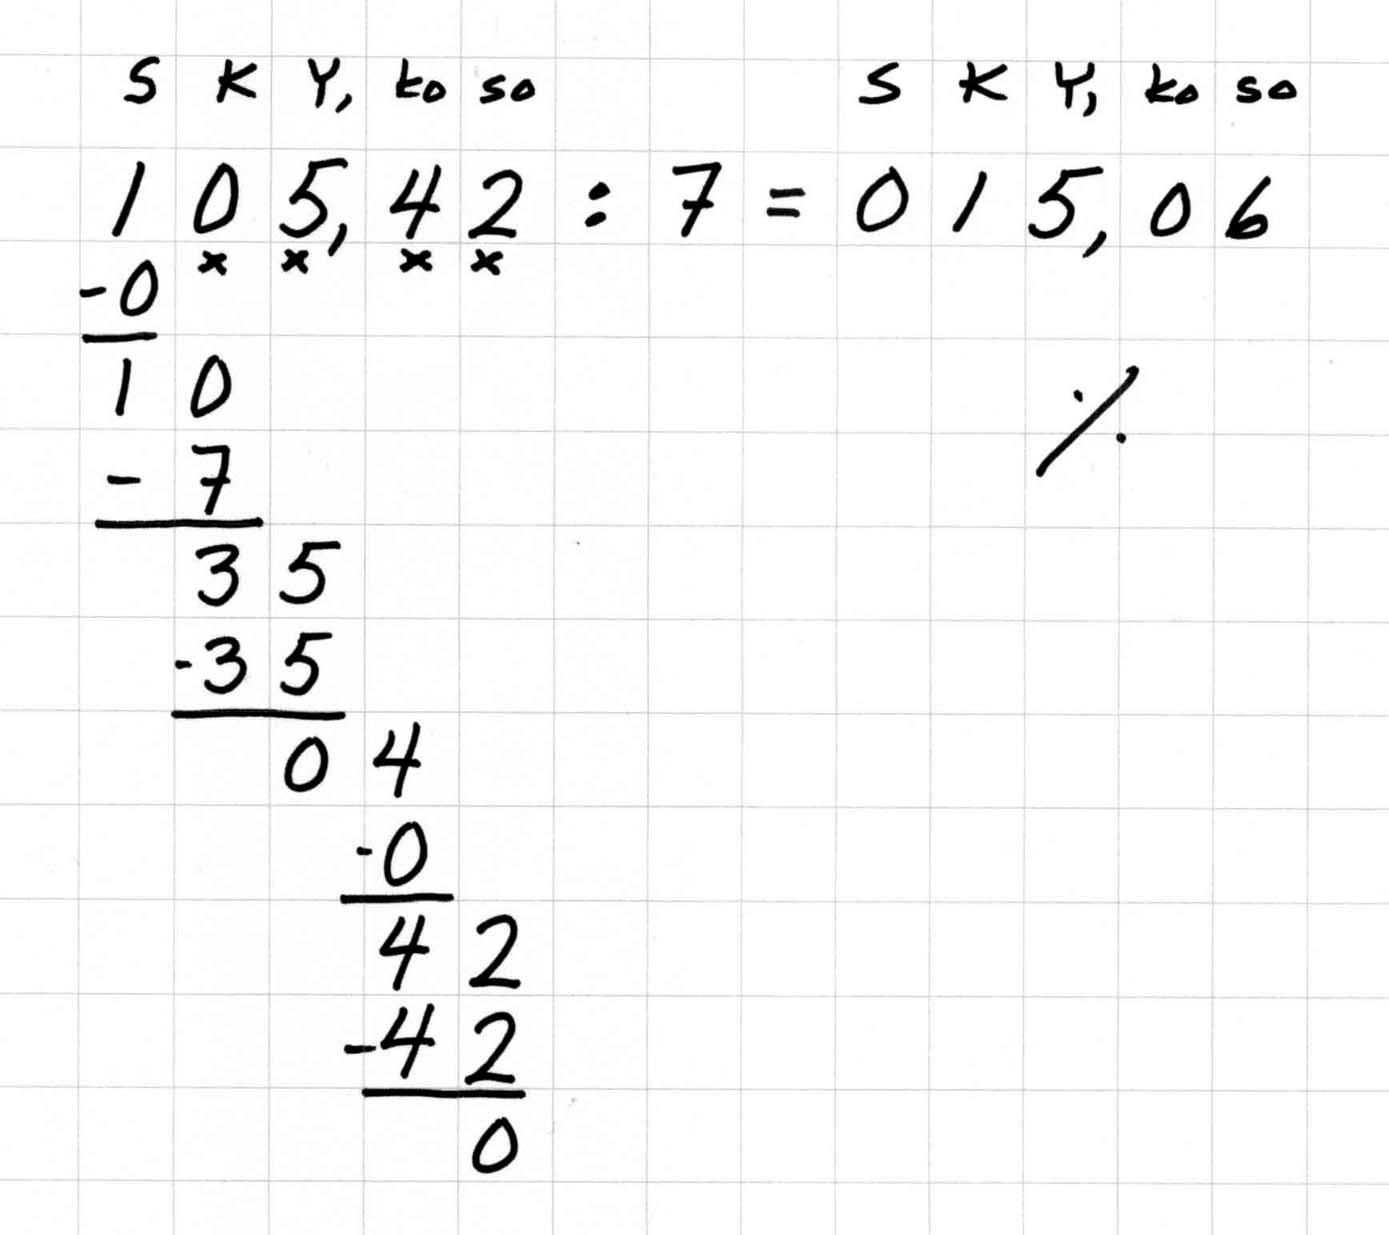 S K Y, ko so S K Y, ko so
105,42 : 7 = 015,06
x x x x
-0
10
-7
35
-35
04
-0
42
-42
0
⁒